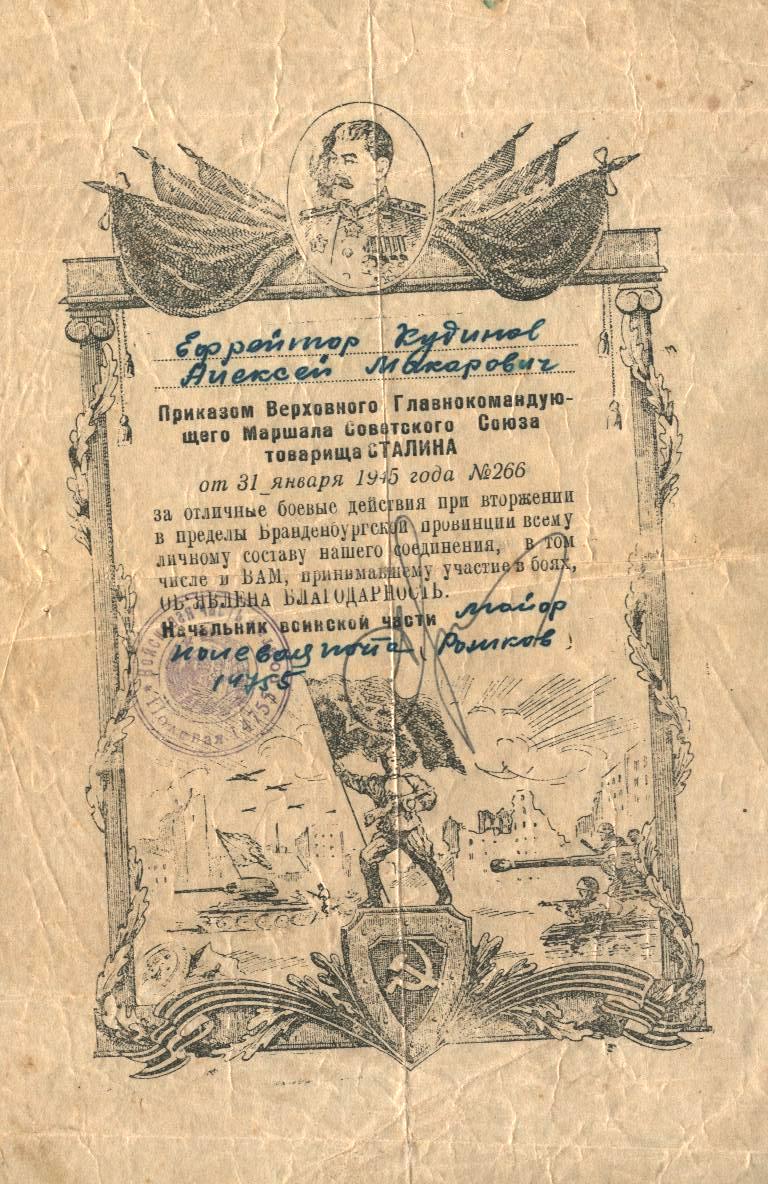 Ефрейтор Кудинов
Алексей Макарович
Приказом Верховного Главнокомандую-
щего Маршала Советского Союза
товарища СТАЛИНА
от 31 января 1945 года №266
за отличные боевые действия при вторжении
в пределы Бранденбургской провинции всему
личному составу нашего соединения, в том
числе и ВАМ, принимавшему участие в боях,
ОБ'ЯВЛЕНА БЛАГОДАРНОСТЬ.
Начальник воинской части майор
полевая почта (Рожков)
14755
Полевая 14755